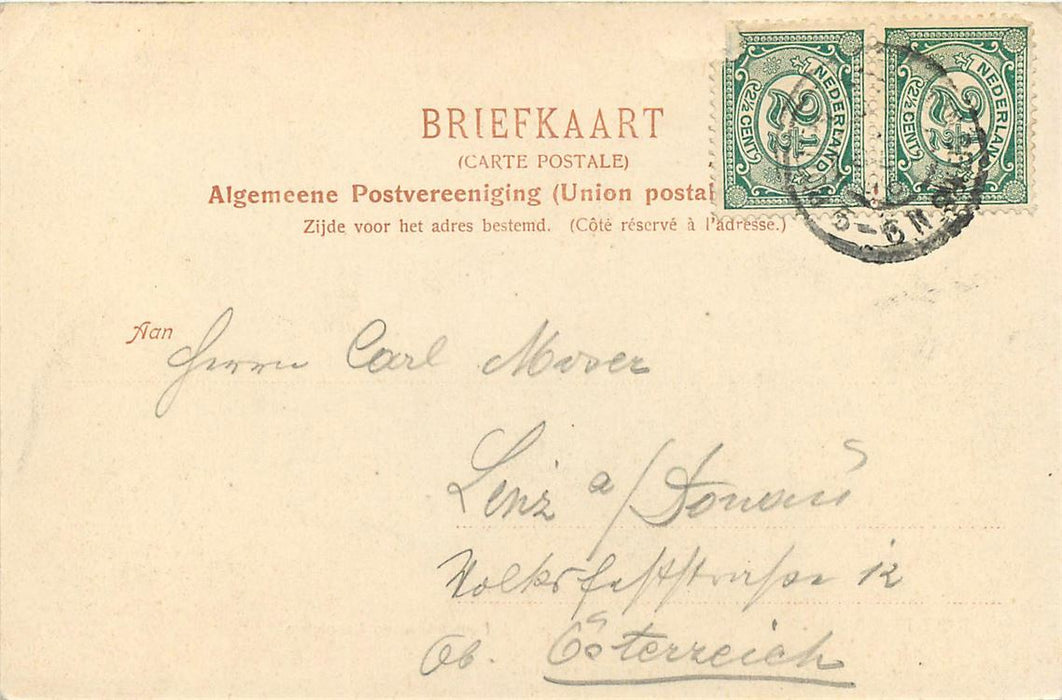 BRIEFKAART
(CARTE POSTALE)
Algemeene Postvereeniging (Union postal
Zijde voor het adres bestemd. (Côté réservé à l'adresse.)
NEDERLAND
2½
2½ CENT
NEDERLAND
2½
2½ CENT
Aan Herrn Carl Moser
Linz a/Donau
Volksfeststrasse 12
Ob. Österreich